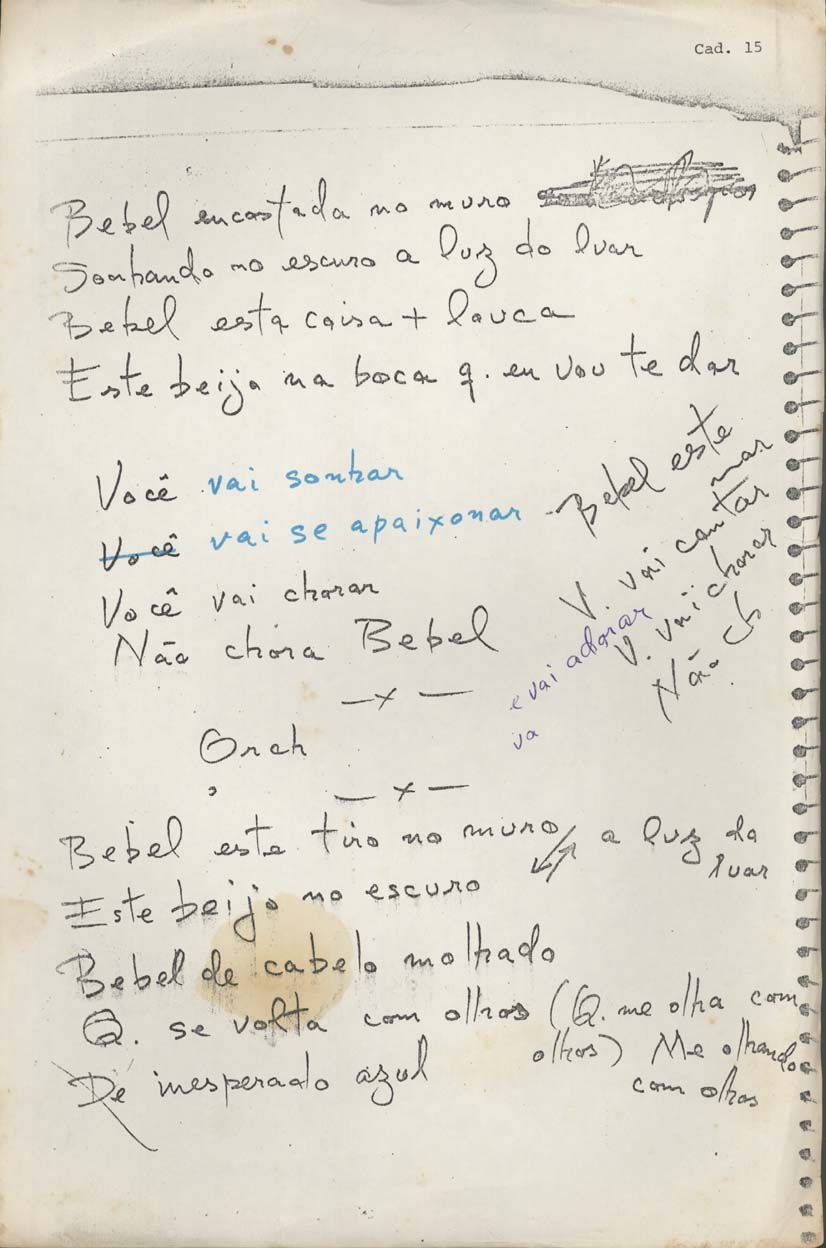 Cad. 15
Bebel encostada no muro
Sonhando no escuro a luz do luar
Bebel esta coisa + louca
Este beijo na boca q. eu vou te dar
Você vai sonhar
Você vai se apaixonar
Você vai chorar
Não chora Bebel
Bebel este
mar
V. vai cantar
V. vai chorar
Não ch
e vai adorar
va
— x —
Orch
— x —
Bebel este tiro no muro a luz do
luar
Este beijo no escuro
Bebel de cabelo molhado
Q. se volta com olhos (Q. me olha com
olhos) Me olhando
com olhos
De inesperado azul